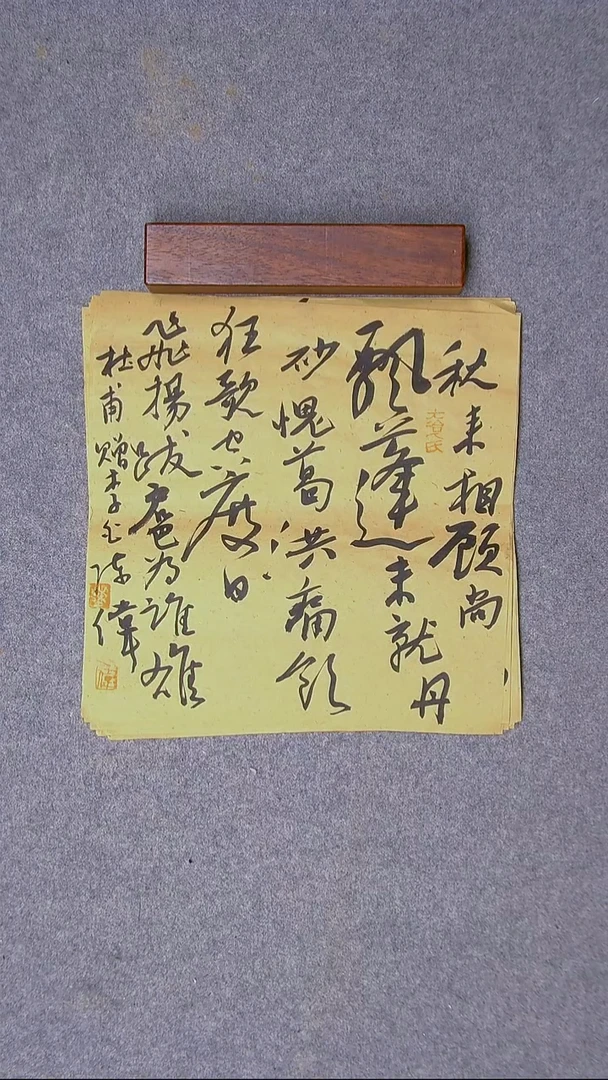 秋来相顾尚
飘蓬未就丹
砂愧葛洪痛饮
狂歌空度日
飞扬跋扈为谁雄
杜甫赠李白 陈伟